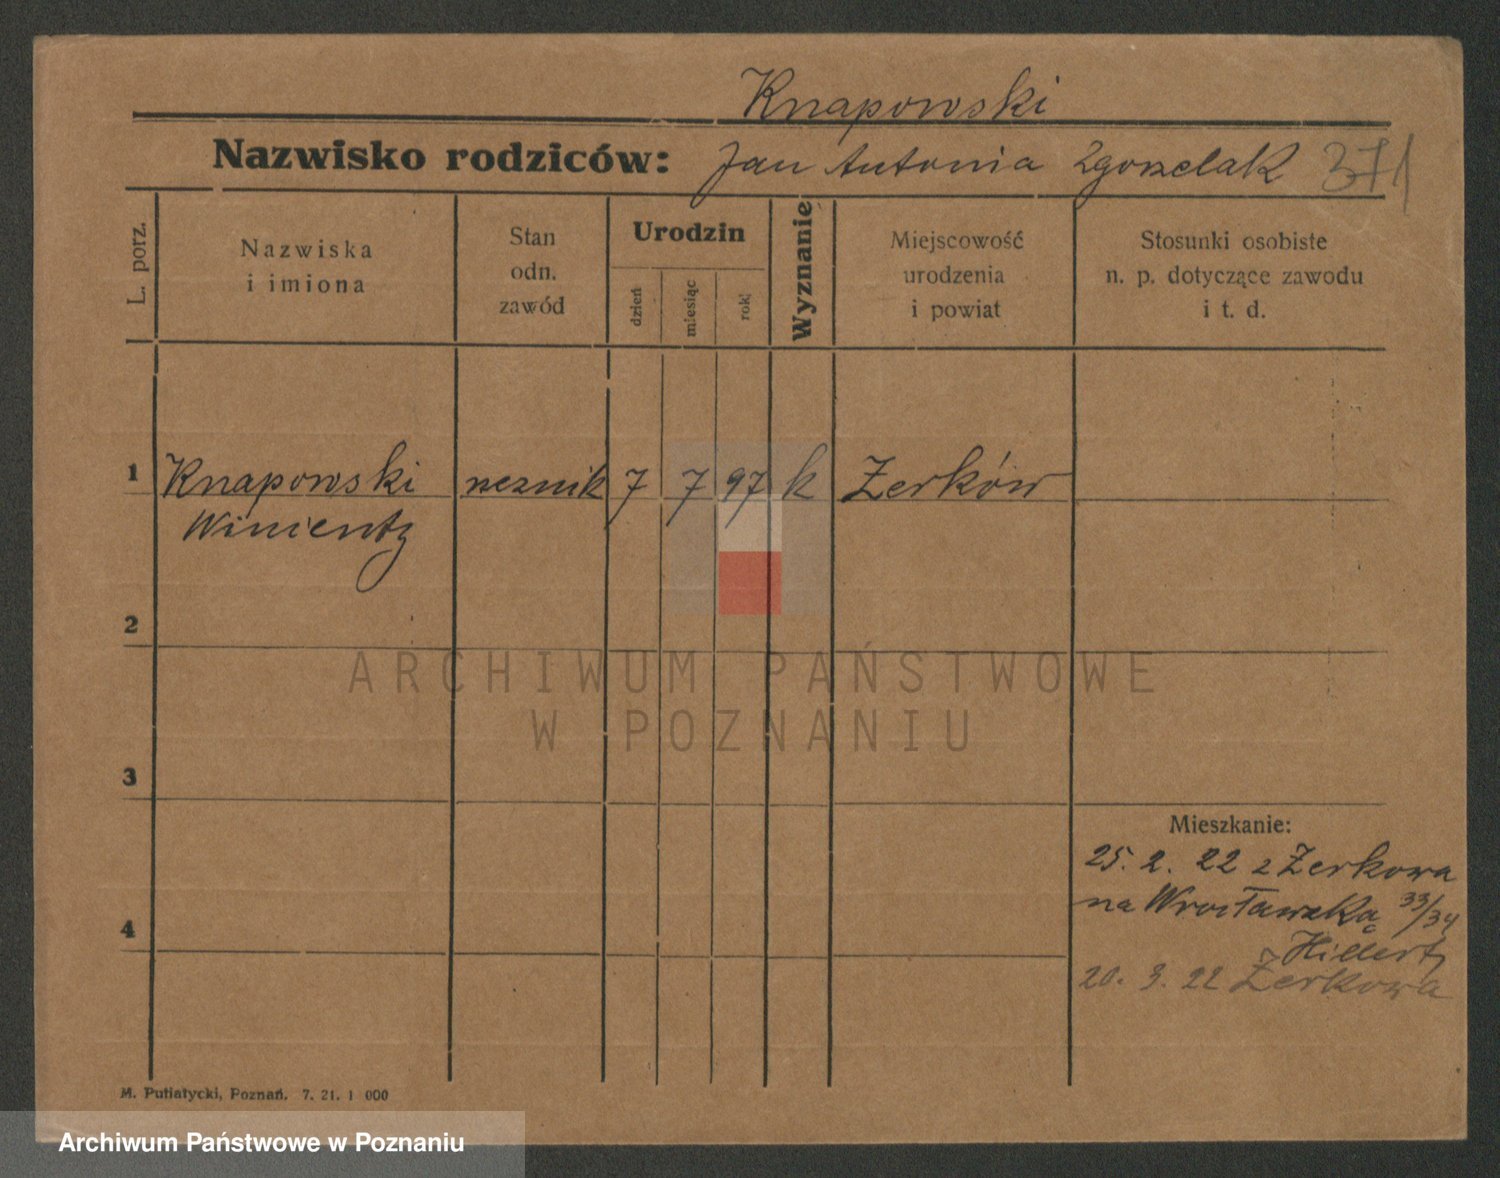 Knapowski
Nazwisko rodziców: Jan Antonia Zgorzelak 371
L. porz.
Nazwiska i imiona
Stan odn. zawód
Urodzin
dzień
miesiąc
rok
Wyznanie
Miejscowość urodzenia i powiat
Stosunki osobiste n. p. dotyczące zawodu i t. d.
1 Knapowski rzeznik 7 7 97 k Żerków
Wincenty
2
3
4
Mieszkanie:
25. 2. 22 z Żerkowa
na Wrocławską 33/34
Hillert
20. 3. 22 Żerkowa
M. Putiatycki, Poznań. 7. 21. 1 000
ARCHIWUM PAŃSTWOWE
W POZNANIU
Archiwum Państwowe w Poznaniu